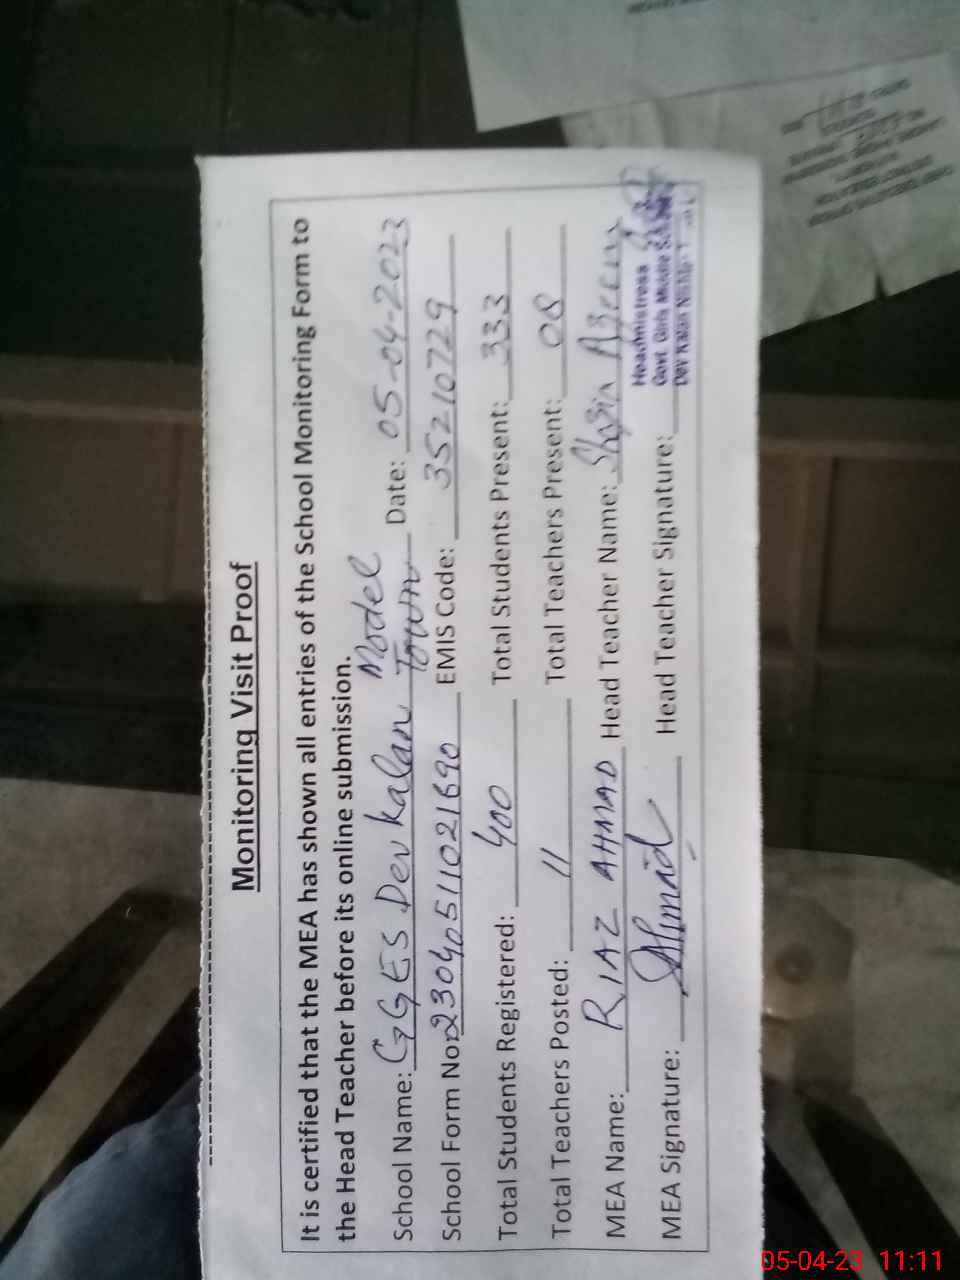 Monitoring Visit Proof
It is certified that the MEA has shown all entries of the School Monitoring Form to
the Head Teacher before its online submission.
School Name: GGES Dev Kalan Model Town Date: 05-04-2023
School Form No: 23040511021690 EMIS Code: 35210729
Total Students Registered: 400 Total Students Present: 333
Total Teachers Posted: 11 Total Teachers Present: 08
MEA Name: RIAZ AHMAD Head Teacher Name: Azeem
MEA Signature: Ahmad Head Teacher Signature:
Headmistress
Govt. Girls Middle School
Dev Kalan
05-04-23 11:11